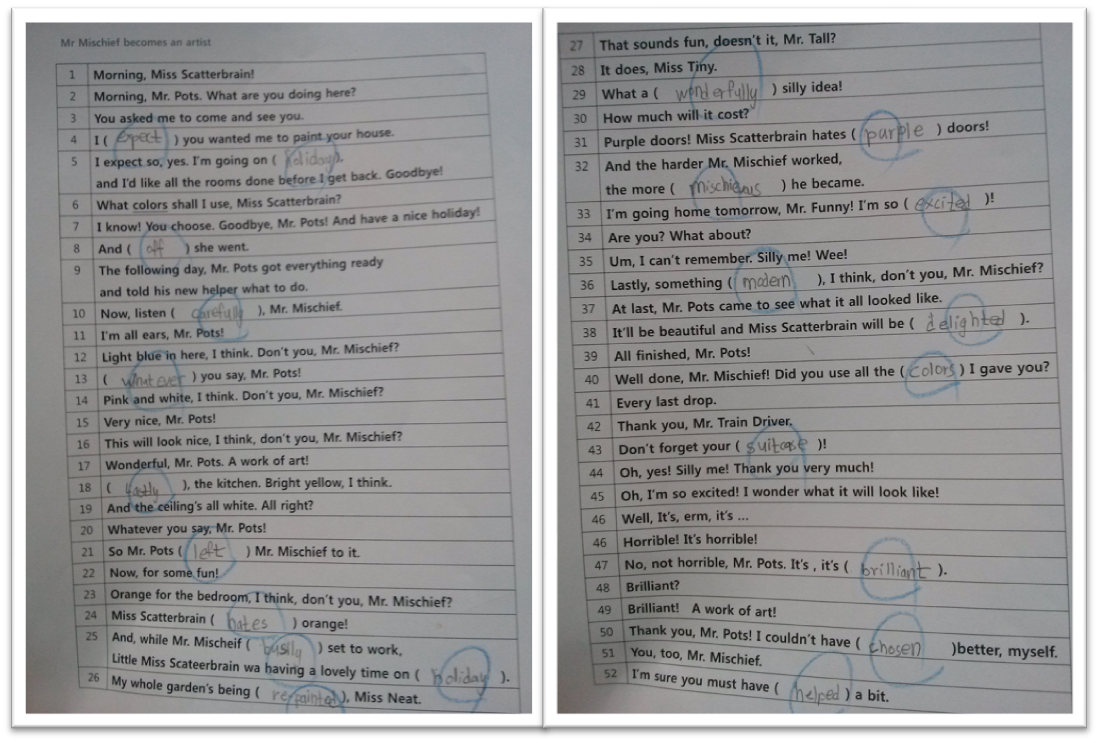 Mr Mischief becomes an artist
1 Morning, Miss Scatterbrain!
2 Morning, Mr. Pots. What are you doing here?
3 You asked me to come and see you.
4 I ( expect ) you wanted me to paint your house.
5 I expect so, yes. I'm going on ( holiday ),
and I'd like all the rooms done before I get back. Goodbye!
6 What colors shall I use, Miss Scatterbrain?
7 I know! You choose. Goodbye, Mr. Pots! And have a nice holiday!
8 And ( off ) she went.
9 The following day, Mr. Pots got everything ready
and told his new helper what to do.
10 Now, listen ( carefully ), Mr. Mischief.
11 I'm all ears, Mr. Pots!
12 Light blue in here, I think. Don't you, Mr. Mischief?
13 ( whatever ) you say, Mr. Pots!
14 Pink and white, I think. Don't you, Mr. Mischief?
15 Very nice, Mr. Pots!
16 This will look nice, I think, don't you, Mr. Mischief?
17 Wonderful, Mr. Pots. A work of art!
18 ( lastly ), the kitchen. Bright yellow, I think.
19 And the ceiling's all white. All right?
20 Whatever you say, Mr. Pots!
21 So Mr. Pots ( left ) Mr. Mischief to it.
22 Now, for some fun!
23 Orange for the bedroom, I think, don't you, Mr. Mischief?
24 Miss Scatterbrain ( hates ) orange!
25 And, while Mr. Mischeif ( busily ) set to work,
Little Miss Scateerbrain wa having a lovely time on ( holiday ).
26 My whole garden's being ( repainted ), Miss Neat.
27 That sounds fun, doesn't it, Mr. Tall?
28 It does, Miss Tiny.
29 What a ( wonderfully ) silly idea!
30 How much will it cost?
31 Purple doors! Miss Scatterbrain hates ( purple ) doors!
32 And the harder Mr. Mischief worked,
the more ( mischievous ) he became.
33 I'm going home tomorrow, Mr. Funny! I'm so ( excited )!
34 Are you? What about?
35 Um, I can't remember. Silly me! Wee!
36 Lastly, something ( modern ), I think, don't you, Mr. Mischief?
37 At last, Mr. Pots came to see what it all looked like.
38 It'll be beautiful and Miss Scatterbrain will be ( delighted ).
39 All finished, Mr. Pots!
40 Well done, Mr. Mischief! Did you use all the ( colors ) I gave you?
41 Every last drop.
42 Thank you, Mr. Train Driver.
43 Don't forget your ( suitcase )!
44 Oh, yes! Silly me! Thank you very much!
45 Oh, I'm so excited! I wonder what it will look like!
46 Well, It's, erm, it's ...
46 Horrible! It's horrible!
47 No, not horrible, Mr. Pots. It's , it's ( brilliant ).
48 Brilliant?
49 Brilliant! A work of art!
50 Thank you, Mr. Pots! I couldn't have ( chosen )better, myself.
51 You, too, Mr. Mischief.
52 I'm sure you must have ( helped ) a bit.